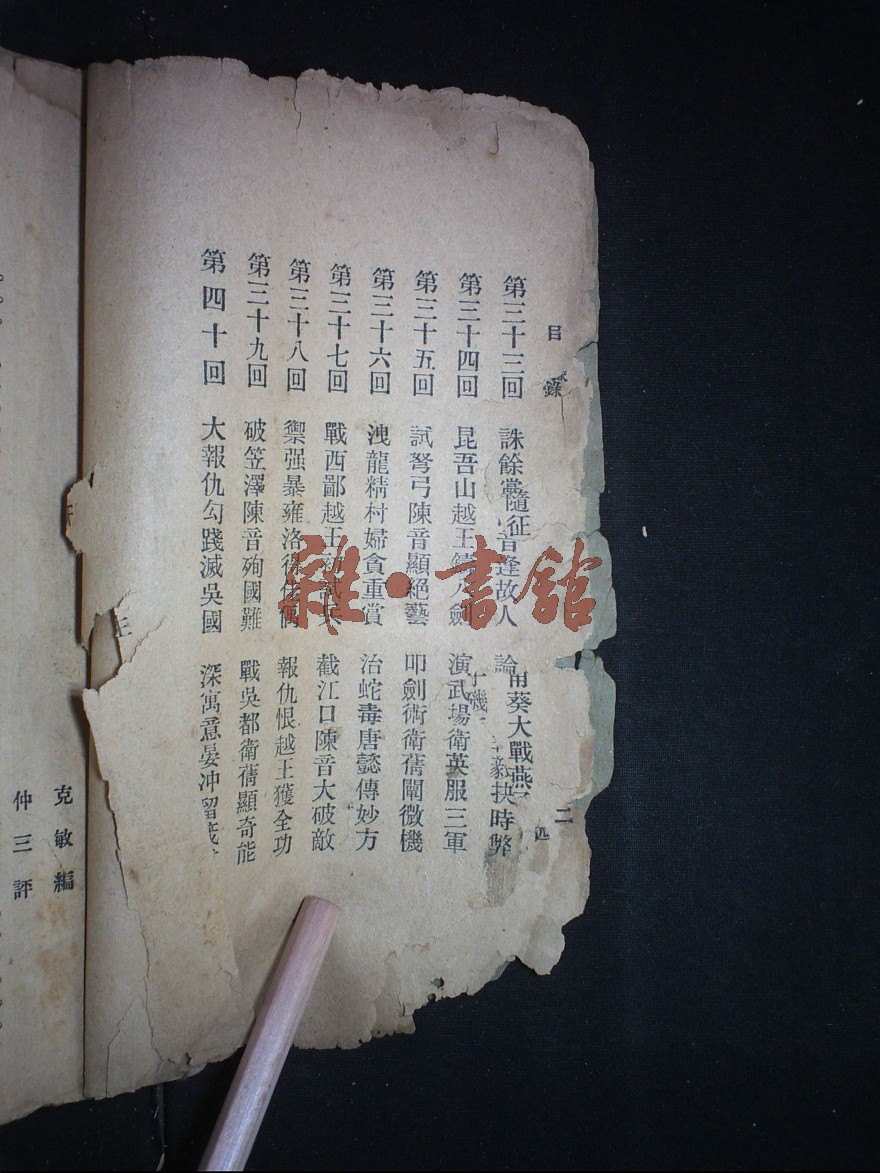 目錄
二
第三十三回 誅餘黨 音逢故人 論 毅挾時弊
隨征
甯葵大戰燕
第三十四回 昆吾山越王鑄八劍 演武場衛英服三軍
第三十五回 試弩弓陳音顯絕藝 叩劍術衛蒨闡微機
第三十六回 洩龍精村婦貪重賞 治蛇毒唐懿傳妙方
第三十七回 戰西鄙越王 兵 截江口陳音大破敵
第三十八回 禦强暴雍洛得佳偶 報仇恨越王獲全功
第三十九回 破笠澤陳音殉國難 戰吳都衛蒨顯奇能
第四十回 大報仇勾踐滅吳國 深寓意晏沖留
克敏編
仲三評
雜·書館